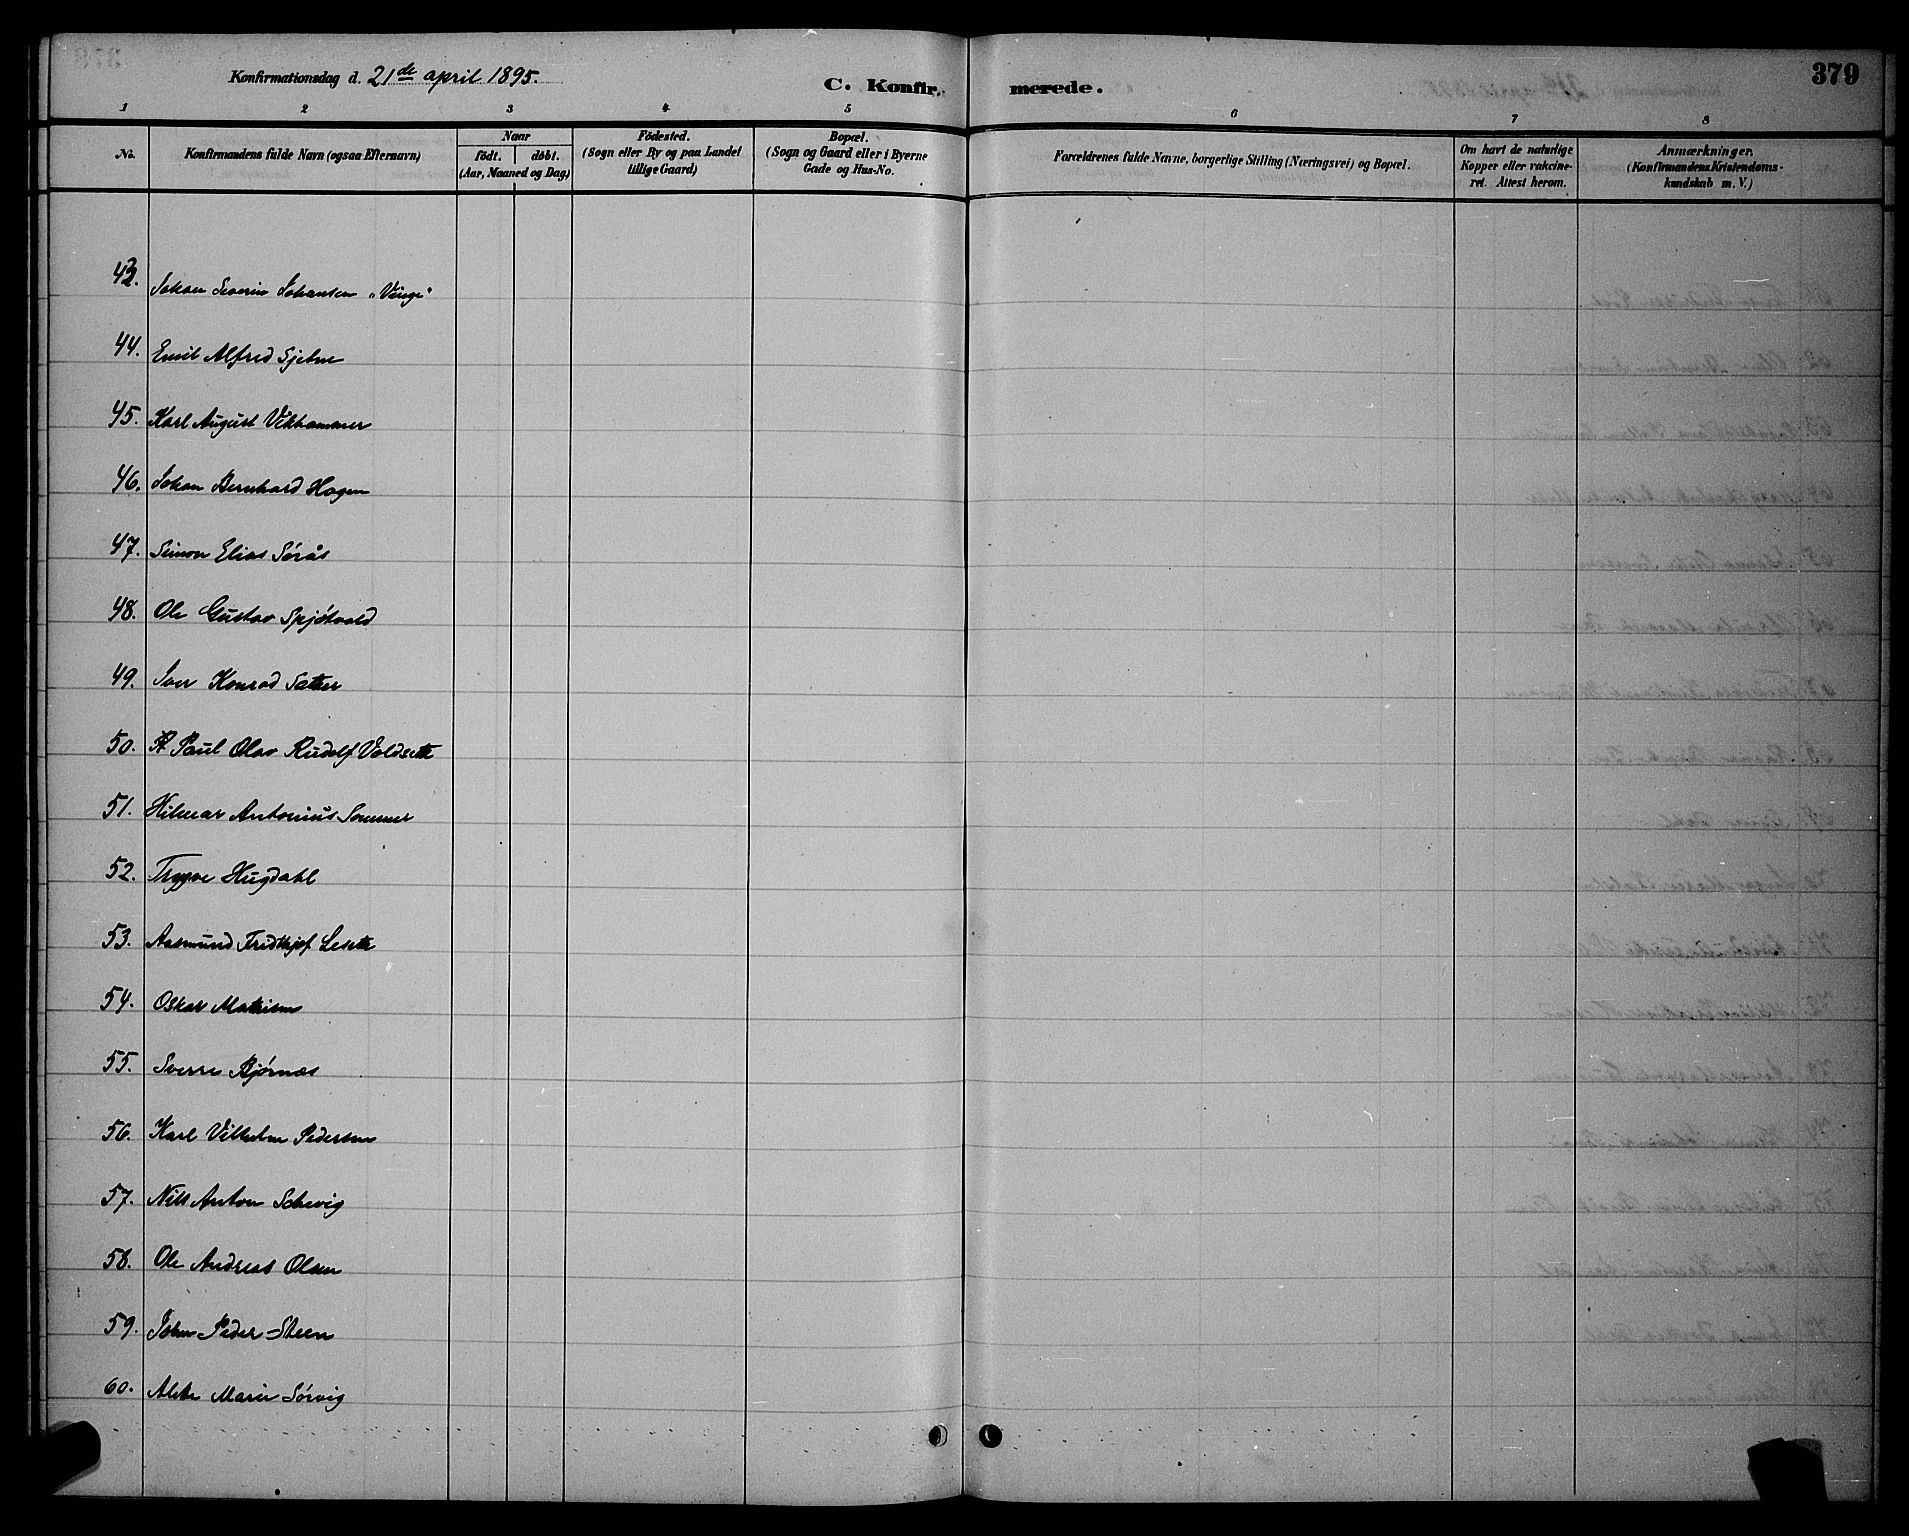 379
Konfirmationsdag d. 21de april 1895.
C. Konfirmerede.
1 2 3 4 5 6 7 8
No.
Konfirmandens fulde Navn (ogsaa Efternavn)
Naar
födt. döbt.
(Aar, Maaned og Dag)
Födested.
(Sogn eller By og paa Landet
tillige Gaard)
Bopæl.
(Sogn og Gaard eller i Byerne
Gade og Hus-No.
Forældrenes fulde Navne, borgerlige Stilling (Næringsvei) og Bopæl.
Om havt de naturlige
Kopper eller vakcine-
ret. Attest herom.
Anmærkninger.
(Konfirmandens Kristendoms-
kundskab m. V.)
43. Johan Severin Johansen "Vinge"
44. Emil Alfred Sjetne
45. Karl August Vikhammer
46. Johan Bernhard Hagen
47. Simon Elias Sørås
48. Ole Gustav Spjøtvold
49. Iver Konrad Sæther
50. Paul Olav Rudolf Voldseth
51. Hilmar Antonius Sommer
52. Trygve Hugdahl
53. Aasmund Fridthjof Leseth
54. Oskar Mathisen
55. Sverre Bjørnæs
56. Karl Vilhelm Pedersen
57. Nils Anton Schevig
58. Ole Andreas Olsen
59. John Peder Steen
60. Alette Marie Sørvig